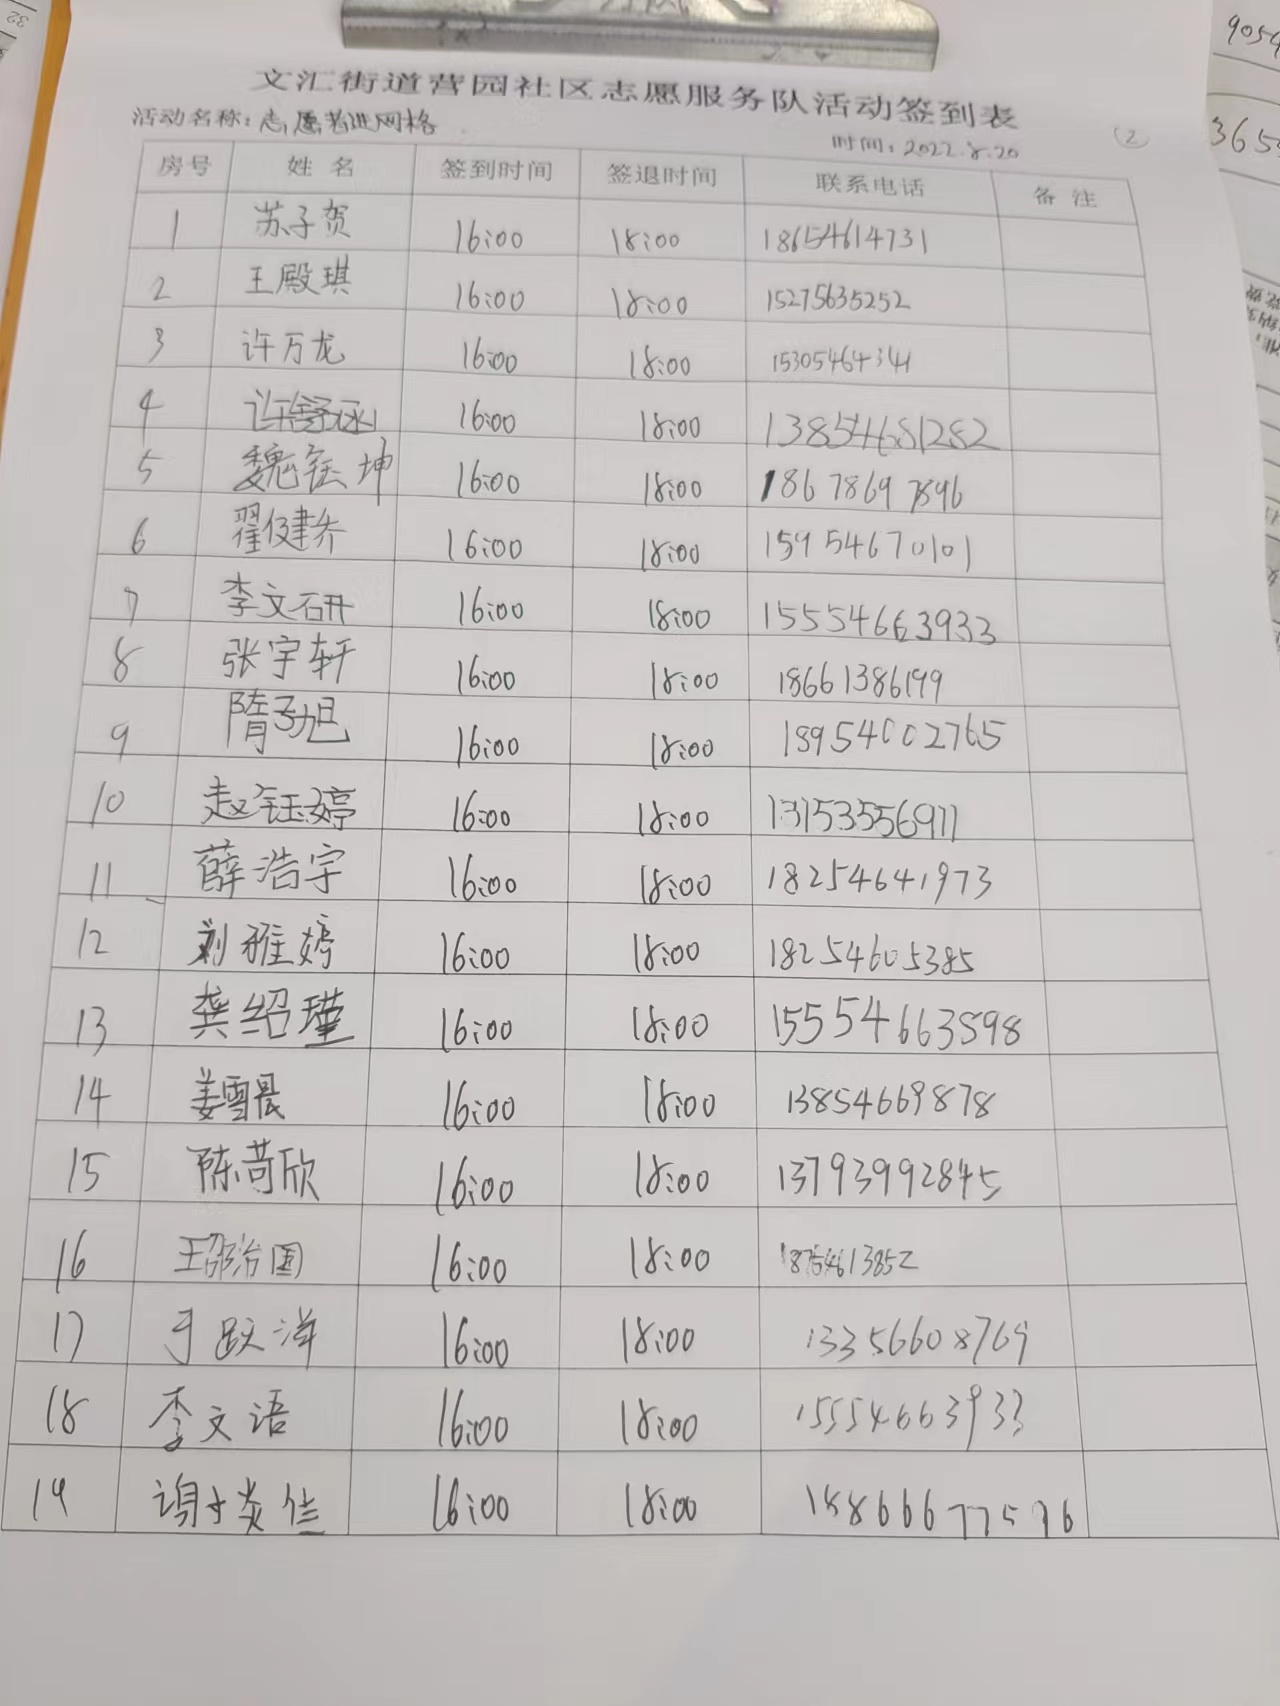 文汇街道营园社区志愿服务队活动签到表
活动名称：志愿者进网格
时间：2022.8.20 ②
房号 姓名 签到时间 签退时间 联系电话 备注
1 苏子贺 16:00 18:00 18654614731
2 王殿琪 16:00 18:00 15275635252
3 许万龙 16:00 18:00 15305464341
4 许舒涵 16:00 18:00 13854681282
5 魏钰坤 16:00 18:00 18678697896
6 翟健乔 16:00 18:00 15954670101
7 李文研 16:00 18:00 15554663933
8 张宇轩 16:00 18:00 18661386199
9 隋子旭 16:00 18:00 18954002765
10 赵钰婷 16:00 18:00 13153556911
11 薛浩宇 16:00 18:00 18254641973
12 刘雅婷 16:00 18:00 18254605385
13 龚绍瑾 16:00 18:00 15554663598
14 姜雪晨 16:00 18:00 13854669878
15 陈苛欣 16:00 18:00 13793992845
16 王邵治国 16:00 18:00 18754613852
17 于跃洋 16:00 18:00 13356608769
18 李文语 16:00 18:00 15554663933
19 16:00 18:00 18866677576
9054
365
32